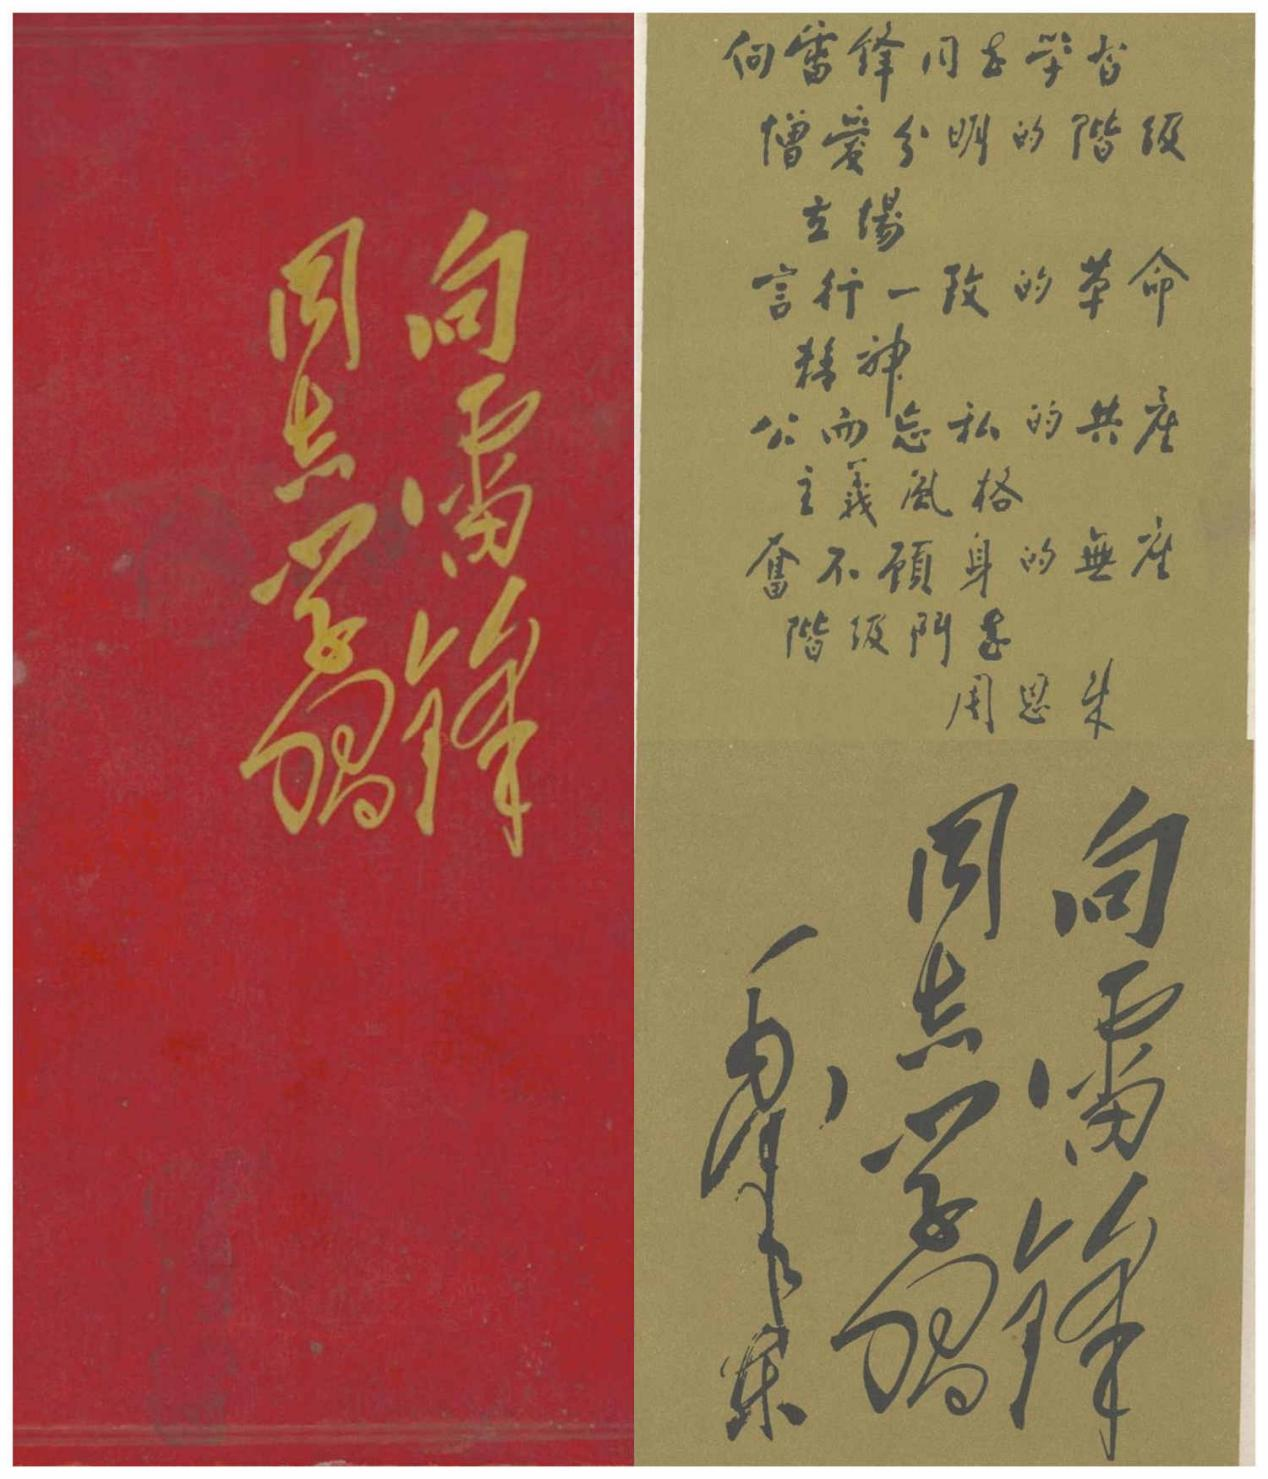 向雷锋
同志学习
向雷鋒同志学習
憎愛分明的階级
立場
言行一致的革命
精神
公而忘私的共産
主義風格
奮不顧身的無産
階级鬥志
周恩来
向雷锋
同志学习
毛泽东